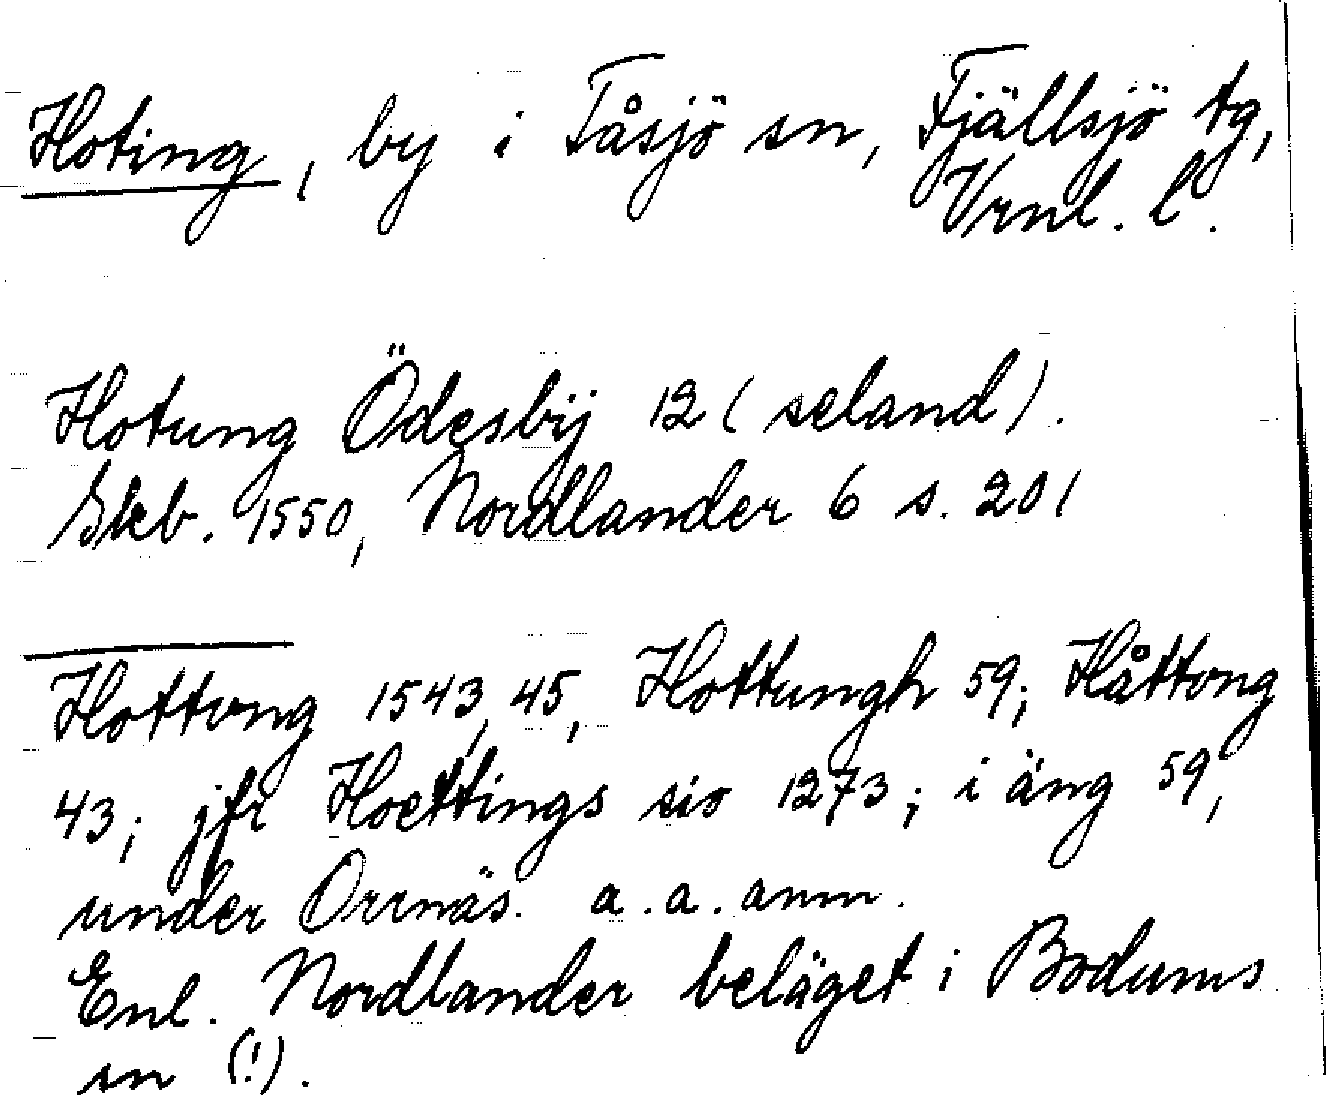 Hoting, by i Tåsjö sn, Fjällsjö tg,
Vrnl. l.
Hotung Ödesbÿ 12 (seland).
Skb. 1550, Nordlander 6 s. 201
Hottong 1543, 45, Hottungh 59; Håttong
43; jfr Hoettings sio 1273; i äng 59,
under Orrnäs. a.a. anm.
Enl. Nordlander beläget i Bodums
sn (!).